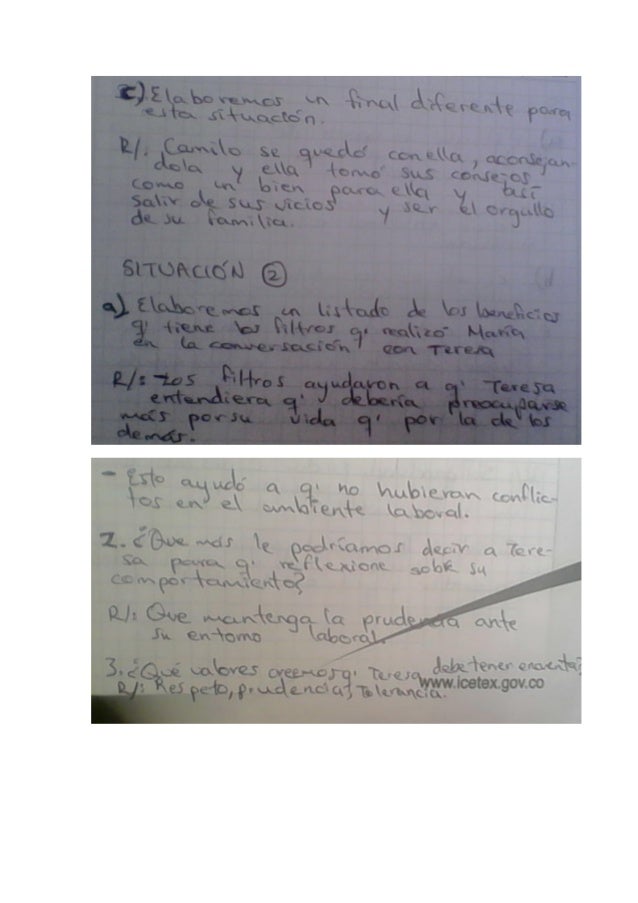 c) Elaboremos un final diferente para
esta situación.
R/. Camilo se quedó con ella, aconsejan-
dola y ella tomó sus consejos
como un bien para ella y así
salir de sus vicios y ser el orgullo
de su familia.
SITUACIÓN ②
a) Elaboremos un listado de los beneficios
q' tiene los filtros q' realizó María
en la conversación con Teresa
R/: Los filtros ayudaron a q' Teresa
entendiera q' debería preocuparse
más por su vida q' por la de los
demás.
- Esto ayudó a q' no hubieran conflic-
tos en el ambiente laboral.
2. ¿Que más le podríamos decir a Tere-
sa para q' reflexione sobre su
comportamiento?
R/: Que mantenga la prudencia ante
su entorno laboral.
3. ¿Qué valores creemos q' Teresa debe tener encuenta?
R/: Respeto, prudencia, Tolerancia.
www.icetex.gov.co